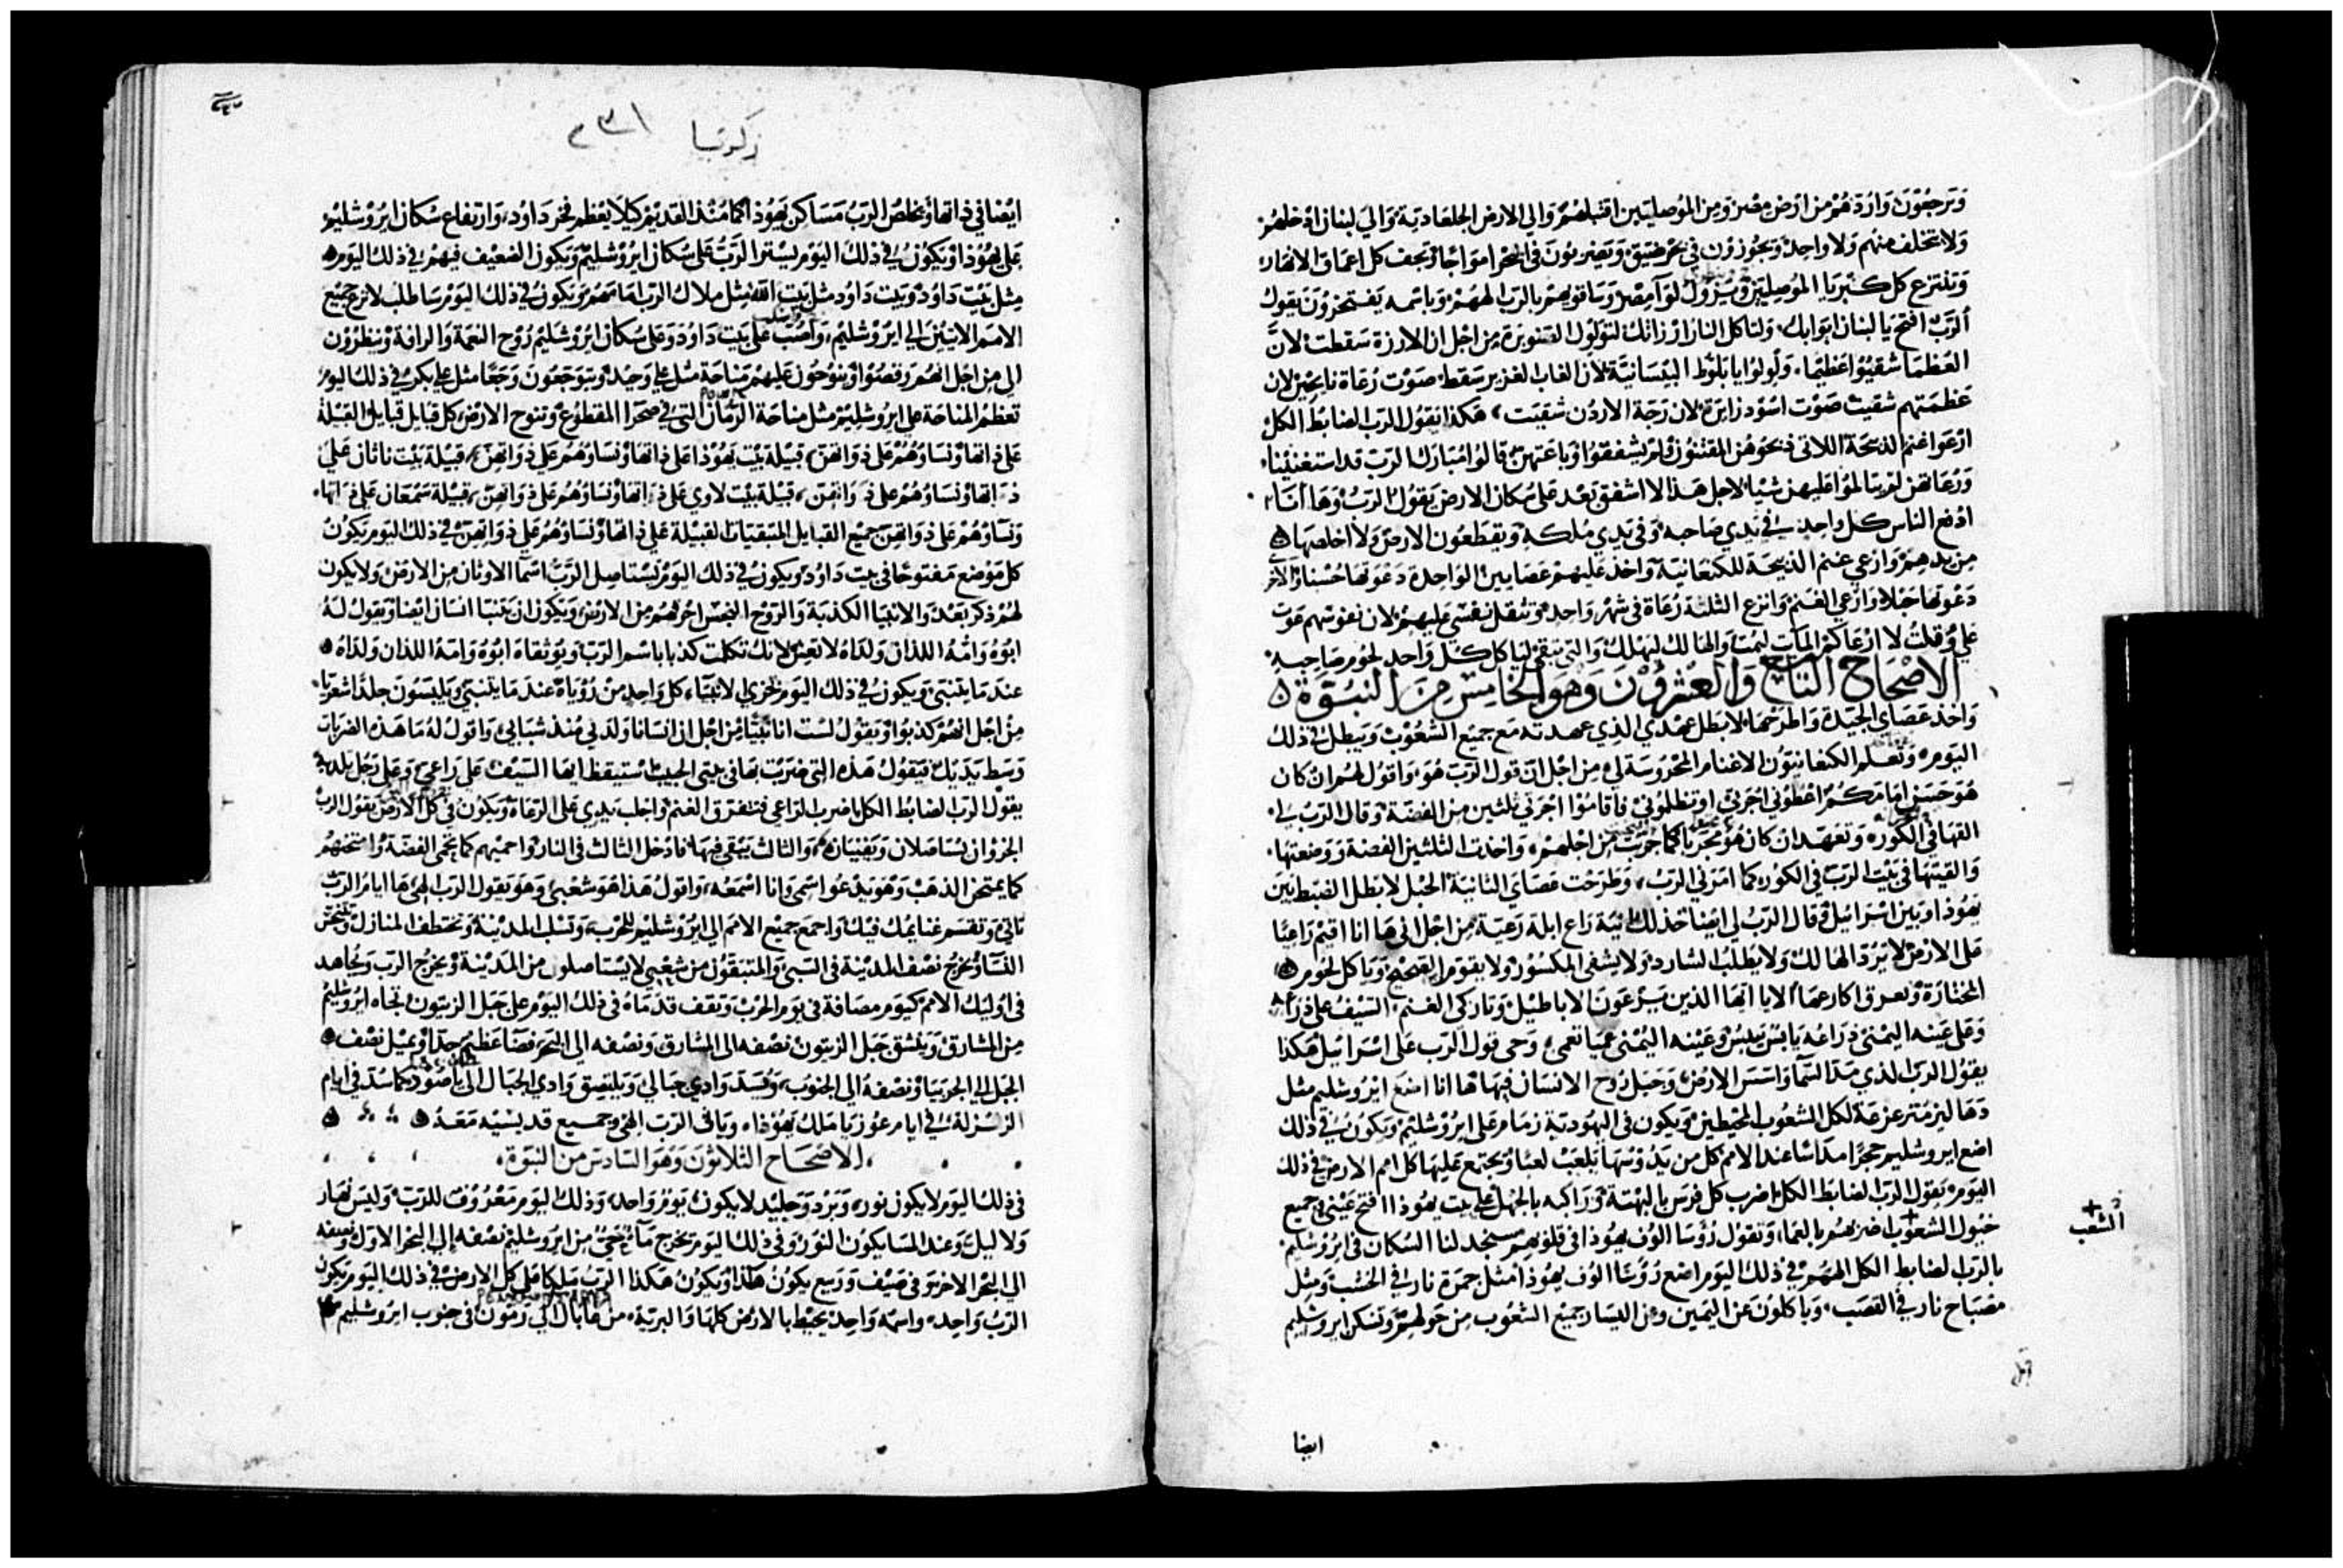 وَترجعُوْنَ وَارُدّهُمْ من ارْض مصْر وَمِن الموُصليّين اقبلهمْ وَالي الارض الجلعاديّة وَالي لبنان ادْخلهُمْ
وَلا يتخلف منهُم وَلا واحدْ وَيجوُزوُن في بحر ضيّق وَيضربوُنَ في البَحْر امواجًا وَيجف كل اعماق الانهار
وَتنتزع كل كبْريا الموُصليّين وَيزوُل لوَآ مصْر وَساقويهمْ بالربّ الههُمْ وَباسْمه يَفتخروُنَ يَقوُل
الربّ افتح يا لبنان ابْوابك وَلتاكل النار ارزاتك لتولوِل الصّنوبَرة من اجْل ان الارزة سَقطت لانَّ
العظمَا شقيوُا عظيْما وَلْولوُا يا بَلوُط البيْسَانيّة لان الغاب الغزير سَقط صَوْت رُعَاة نايحيْن لان
عَظمَتهم شقيت صَوْت اسُوْد زايرَة لان رَجّة الاردُن شقيَت هَكذا يقوُل الربّ الضابط الكلّ
ارْعَوا غنمَ الذبيحَة اللاتي ذبحوُهنّ المقتنوُن وَلمْ يشفقوُا وَباعتهنّ قالوُا مُبَارك الربّ قد استغنيْنا
وَرُعَاتهنّ لمْ يتالموُا عَليهنّ شيْا لاجل هَذا لا اشفق بَعْد عَلى سُكان الارض يَقوُل الربّ وَهَا انَا
ادْفع الناس كل واحدٍ في يَدي صَاحبه وَفي يَدي مَلكه وَيقطعُون الارضَ وَلا اخلصهَا
من يدهمْ وَارْعي غنم الذبيحَة للكنعانيّة وَاخذ عَليهمْ عَصايين الواحدة دَعَوْتها حُسْنا وَالآخر
دَعَوْتها حَبْلا وَارْعَي الغَنمَ وَانزع الثلثة رُعَاة في شهْر وَاحدٍ وَتثقل نفسْي عَليهمْ لان نفوسْهم عَوت
عَليّ وَقلتُ لا ارْعَاكم المآيت ليمُت وَالهالك ليَهلك وَالتي تبقي ليَاكل كل وَاحدٍ لحوْم صَاحِبهِ
الاصْحَاحُ التاسِع وَالعشروُن وَهوَ الخامِس مِن النبوّة
وَاخذ عَصَاي الجيّدة وَاطرَحهَا لابطل عهدي الذي عهدته مَع جميْع الشعوُب وَيبطل في ذلك
اليَوم وَتعلم الكنعانيّوُن الاغنام المحْروُسَة لي من اجْل انّ قول الربّ هوَ وَاقوُل لهمْ ان كان
هوَ حسَن امَامكمُ اعْطوُني اجْرَتي اوْ تظلموُني فاقاموُا اجْرَتي ثلثيْن من الفضّة وَقال الربّ لي
القهَا في الكوُر وَتعهّد ان كان هوُ مجرّبًا كما جرّبْت من اجْلهمْ وَاخذت الثلثين الفضة وَوَضعتها
وَالقيْتها في بَيْت الربّ في الكوُر كما امَرَني الربّ وَطرَحْت عَصَايَ الثانيَة الحبْل لابطل الضبط بَين
يَهوُذا وَبين اسْرائيل وَقال الربّ لي ايضا خذ لك انيَة رَاع ابلة رَعيّة من اجْل اني هَا انا اقيمْ رَاعيًا
عَلى الارْض لا يَرُدّ الهالك وَلا يطلبُ الشارد وَلا يشفى المكسُوْر وَلا يقوّم الصَحيح وَياكل لحوُم
المختارَة وَيعرق اكارعهَا الا يا ايّها الذين يَرْعَوْن الاباطيْل وَتاركي الغنم السَيْف عَلى ذرَاعه
وَعلى عَينه اليُمْنَى ذرَاعُه يابسًا ييبَس وَعَيْنه اليُمْنى عميًا تعمي وَحَي قول الربّ عَلى اسْرَائيل هكذا
يقوُل الربّ الذي مدّ السمآ وَاسّسَ الارْض وَجبَل رُوح الانسَان فيهَا هَا انا اضعَ ايْروُشليم مثل
دَهاليز متزعزعة لكل الشعوُب المحيْطين وَيكون في اليهوُديّة زمَام عَلى ايْروُشليم وَيكوُن في ذلك
اضع ايروشليم حجرًا مداسًا عند الامم كل من يَدُوْسها يَلعَب لعبًا وَيجتمع عَليْها كل امم الارضْ في ذلك
اليَوم يَقوُل الربّ الضابط الكل اضرب كل فرَس بالبهْتة وَرَاكبه بالجهْل وَعلى بيت يهوُذا افتح عَيْني وَجميع
خيُول الشعوُب اضربهمْ بالعمَا وَتقوُل رُؤسَا الوُف يهوُذا في قلوُبهم سنجد لنا السُكان في ايْرُوشليم
بالربّ الضابط الكل الههُمْ في ذلك اليَوم اضع رُؤسَا الوُف يهُوذا مثل جمرَة نار في الخشب وَمثل
مصْبَاح نار في القصَب وَياكلوُن عَن اليَمين وعن اليسَار جميْع الشعُوب من حَولهمْ وَتسْكن ايروشليم
الشعب
ايضا
زكريا
ايْضا في ذاتها وَيخلص الربُّ مَسَاكن يَهوُذا كما مُنذ القديْم كيلا يعْظم فخر دَاوُد وَارتفاع سُكان ايْروُشليم
عَلى يهوُذا وَيكوُن في ذلك اليَوْم يَسْتر الربّ عَلى سُكان ايْروُشليم وَيكون الضعيْف فيهمْ في ذلك اليَوم
مثل بَيْت دَاوُد وَبيت دَاوُد مثل بَيت الله مثل ملاك الربّ امَامَهمْ وَيكوُن في ذلك اليَوْم سَاطلب لانزع جميْع
الامَم الاتيْن الي ايرُوْشليم وَاصُبّ عَلى بَيت دَاوُد وَعَلى سُكان ايْروُشليم رُوْح النعْمَة وَالرافة وَينظرُوْن
الي من اجْل انهمْ رَفصُوْا وَينوُحوُن عَليهمْ مَناحَة مثل عَلى وَحيْد وَيتوَجعُوْن وَجعًا مثل على بكر في ذلك اليوم
تعظم المناحَة في ايرُوشليمْ مثل مناحَة الرمّان التي في صحْرا المقطوُع وَتنوح الارْض كل قبايل قبايل القبيْلة
عَلى ذاتها وَنسَاوُهُمْ عَلى ذوَاتهنّ قبيْلة بيْت يهوُذا عَلى ذاتها وَنسَاوُهُمْ عَلي ذوَاتهنّ قبيْلة بيْت ناثان عَلي
ذاتها وَنسَاوُهُمْ على ذوَاتهنّ قبيْلة بيْت لاوي عَلى ذاتها وَنسَاوُهُمْ عَلى ذوَاتهنّ قبيْلة سَمْعَان عَلى ذاتها
وَنسَاوُهُمْ عَلى ذوَاتهنّ جميْع القبايل المتبقيَات القبيْلة عَلي ذاتها وَنسَاوُهُمْ عَلي ذوَاتهنّ في ذلك اليَوم يَكوُن
كل مَوْضع مَفتوُحًا في بيت دَاوُد وَيكون في ذلك اليَوْم يَستاصل الربُّ اسْمآ الاوْثان من الارضْ وَلا يكون
لهُمْ ذكر بَعْد وَالانبيَا الكذبَة وَالرُوْح النجس اخرجهم من الارْض وَيكون ان يتنبّا انسَان ايْضا وَيقول لهُ
ابوُهُ وَامُّهُ اللذان وَلدَاهُ لا تعيش لانك تكلمت كذبًا باسْم الربّ وَيوُثقاهَ ابوُهُ وَامّهُ اللذان وَلدَاهُ
عندَ مَا يتنبّى وَيكون في ذلك اليَوم يخزي الانبيَاء كل وَاحدٍ من رُؤيَاهُ عندَ مَا يتنبّى وَيلبسُونَ جلدًا شعريًّا
منْ اجْل انهُمْ كذبوُا وَيَقوُل لسْت انا نبيًّا من اجْل ان انسَانا وَلدني مُنذ شبَابي وَاقول لهُ مَا هَذه الضربات
وَسط يَديْك فيَقوُل هَذه التي ضربْت بهَا في بيتي الحبيب استيقظ ايهَا السَيْف عَلى رَاعيّ وَعلى رَجل بلديّ
يقوْل الربّ الضابط الكل اضرب الرَاعي فتتفرق الغنم وَاجلب يَدي عَلى الرعَاة وَيكوُن في كل الارضْ يقوُل الربّ
الجزوُان يستاصلان وَيفنيَان وَالثالث يَبْقى فيهَا فادْخل الثالث في النار وَاحميْهم كما تحْمى الفضّة وَامتحنهمْ
كما يمتحن الذهَبْ وَهوَ يَدْعوا اسْمي وَانا اسْمَعُه وَاقوُل هَذا هَوَ شعْبي وَهوَ يقوُل الربّ الهي هَا ايام الربّ
تاتي وَتقسَم غنايمُك فيْك وَاجمع جميْع الامم الي ايْروُشليم للحرْب وَتسْلب المديْنة وَتختطف المنازل وَتتنجّس
النسَا وَيخرُج نصْف المديْنة في السَبي وَالمتبقوُن من شعْبي لا يُستاصلون من المَديْنة وَيخرُج الربّ وَيجُاهد
في اوْليك الامم كيوم مصَافة في يوم الحَرْب وَتقف قدمَاهُ في ذلك اليوْم على جَبَل الزيتون تجاه ايروشليم
من المشارق وَينشق جَبَل الزيتوُن نصْفه الى المشارق وَنصْفه الى البَحر فضآ عَظيْم جدًّا وَيميْل نصْف
الجبَل الي الجرْبيَا وَنصْفهُ الي الجنوُب وَيُسَدّ وَادي جبالي وَيلتصق وَادي الجبَال الى ياصُوْد كما سُدّ في ايام
الزلزلة في ايام عوُزيا مَلك يَهوُذا وَيافى الربّ الهي وَجميع قديْسيْه مَعَهُ
الاصْحَاح الثلاثوُن وَهوَ السَادسَ من النبوّة
في ذلك اليَوم لا يكون نور وَبَرْد وَجليْد لا يكون يَومٌ وَاحد وَذلك اليَوم مَعْرُوْف للربّ وَليسَ نهَار
وَلا ليل وَعندَ المسَا يكوُن النوُر وَفي ذلك اليَوم يخرج مَآ حَيّ من ايروُشليم نصْفه إلى البَحْر الاوّل وَنصفه
الي البَحْر الاخر وَفي صَيْف وَرَبيع يكوُن هكذا وَيكوُن هَكذا الربّ مَلكا عَلى كل الارْض في ذلك اليَوم يَكوُن
الربّ وَاحد وَاسْمُه وَاحد يحيْط بالارْض كلهَا وَالبريّة من جابال الي رمّون في جنوب ايْروشليم